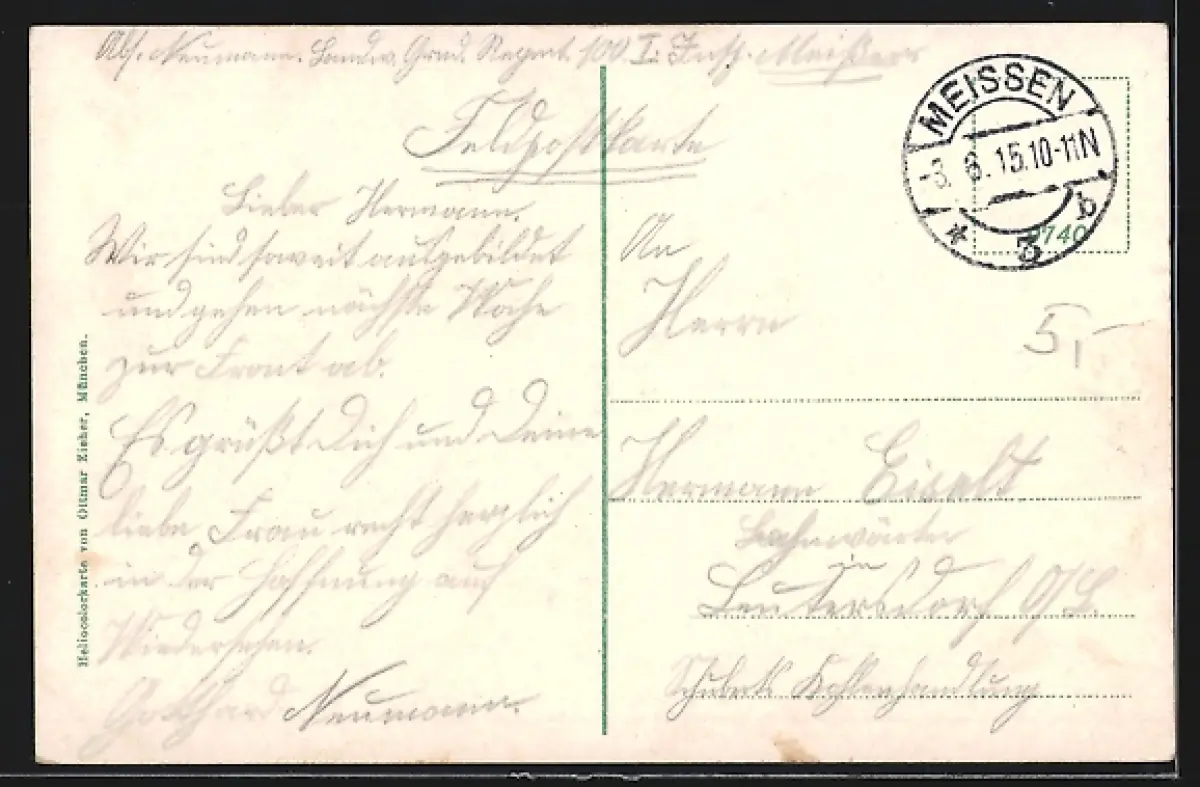 Abs. Neumann. Landw. Gren. Regmt. 100 I. Meißen
Feldpostkarte
Lieber Hermann.
Wir sind soweit ausgebildet
und gehen nächste Woche
zur Front ab.
Es grüßt Dich und Deine
liebe Frau recht herzlich
in der Hoffnung auf
Wiedersehen.
Gotthard Neumann.
Heliocolorkarte von Ottmar Zieher, München.
MEISSEN
-3. 6. 15. 10-11N
* 3 b
9740
An
Herrn
5,-
Hermann Eiselt
Bahnwärter
in
Leutersdorf O/L.
Schuberts Kohlenhandlung